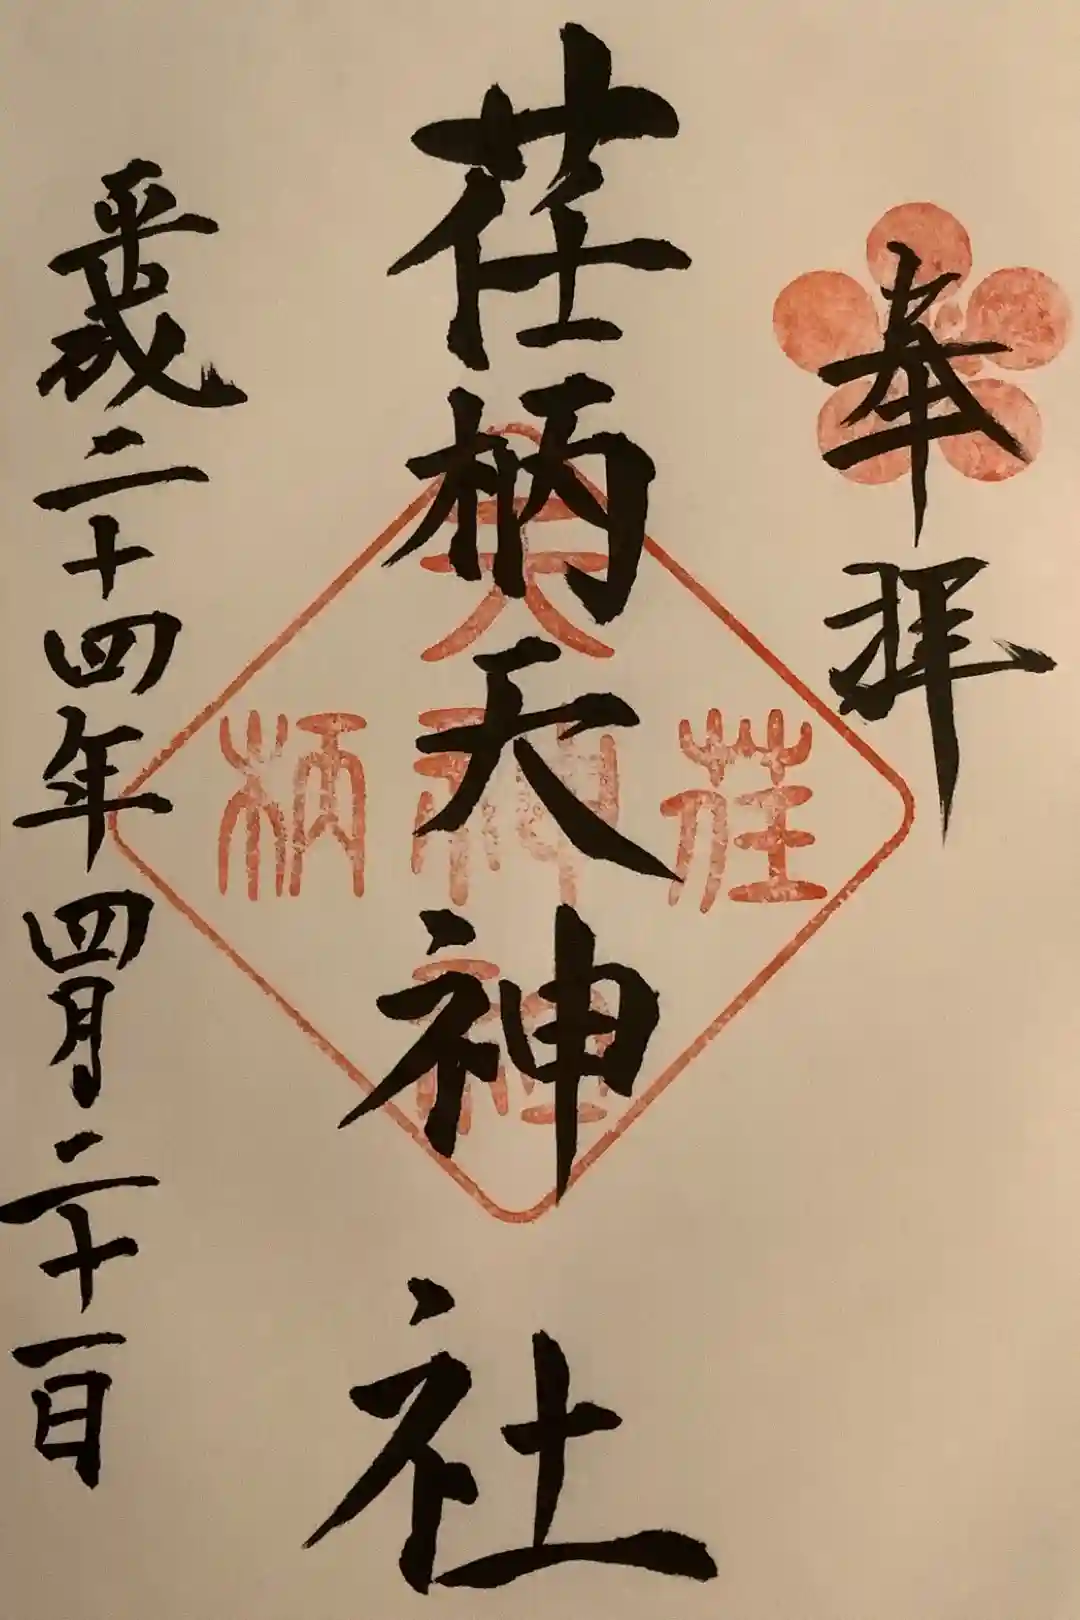 奉拝
荏柄天神社
平成二十四年四月二十一日
荏
天神社
柄